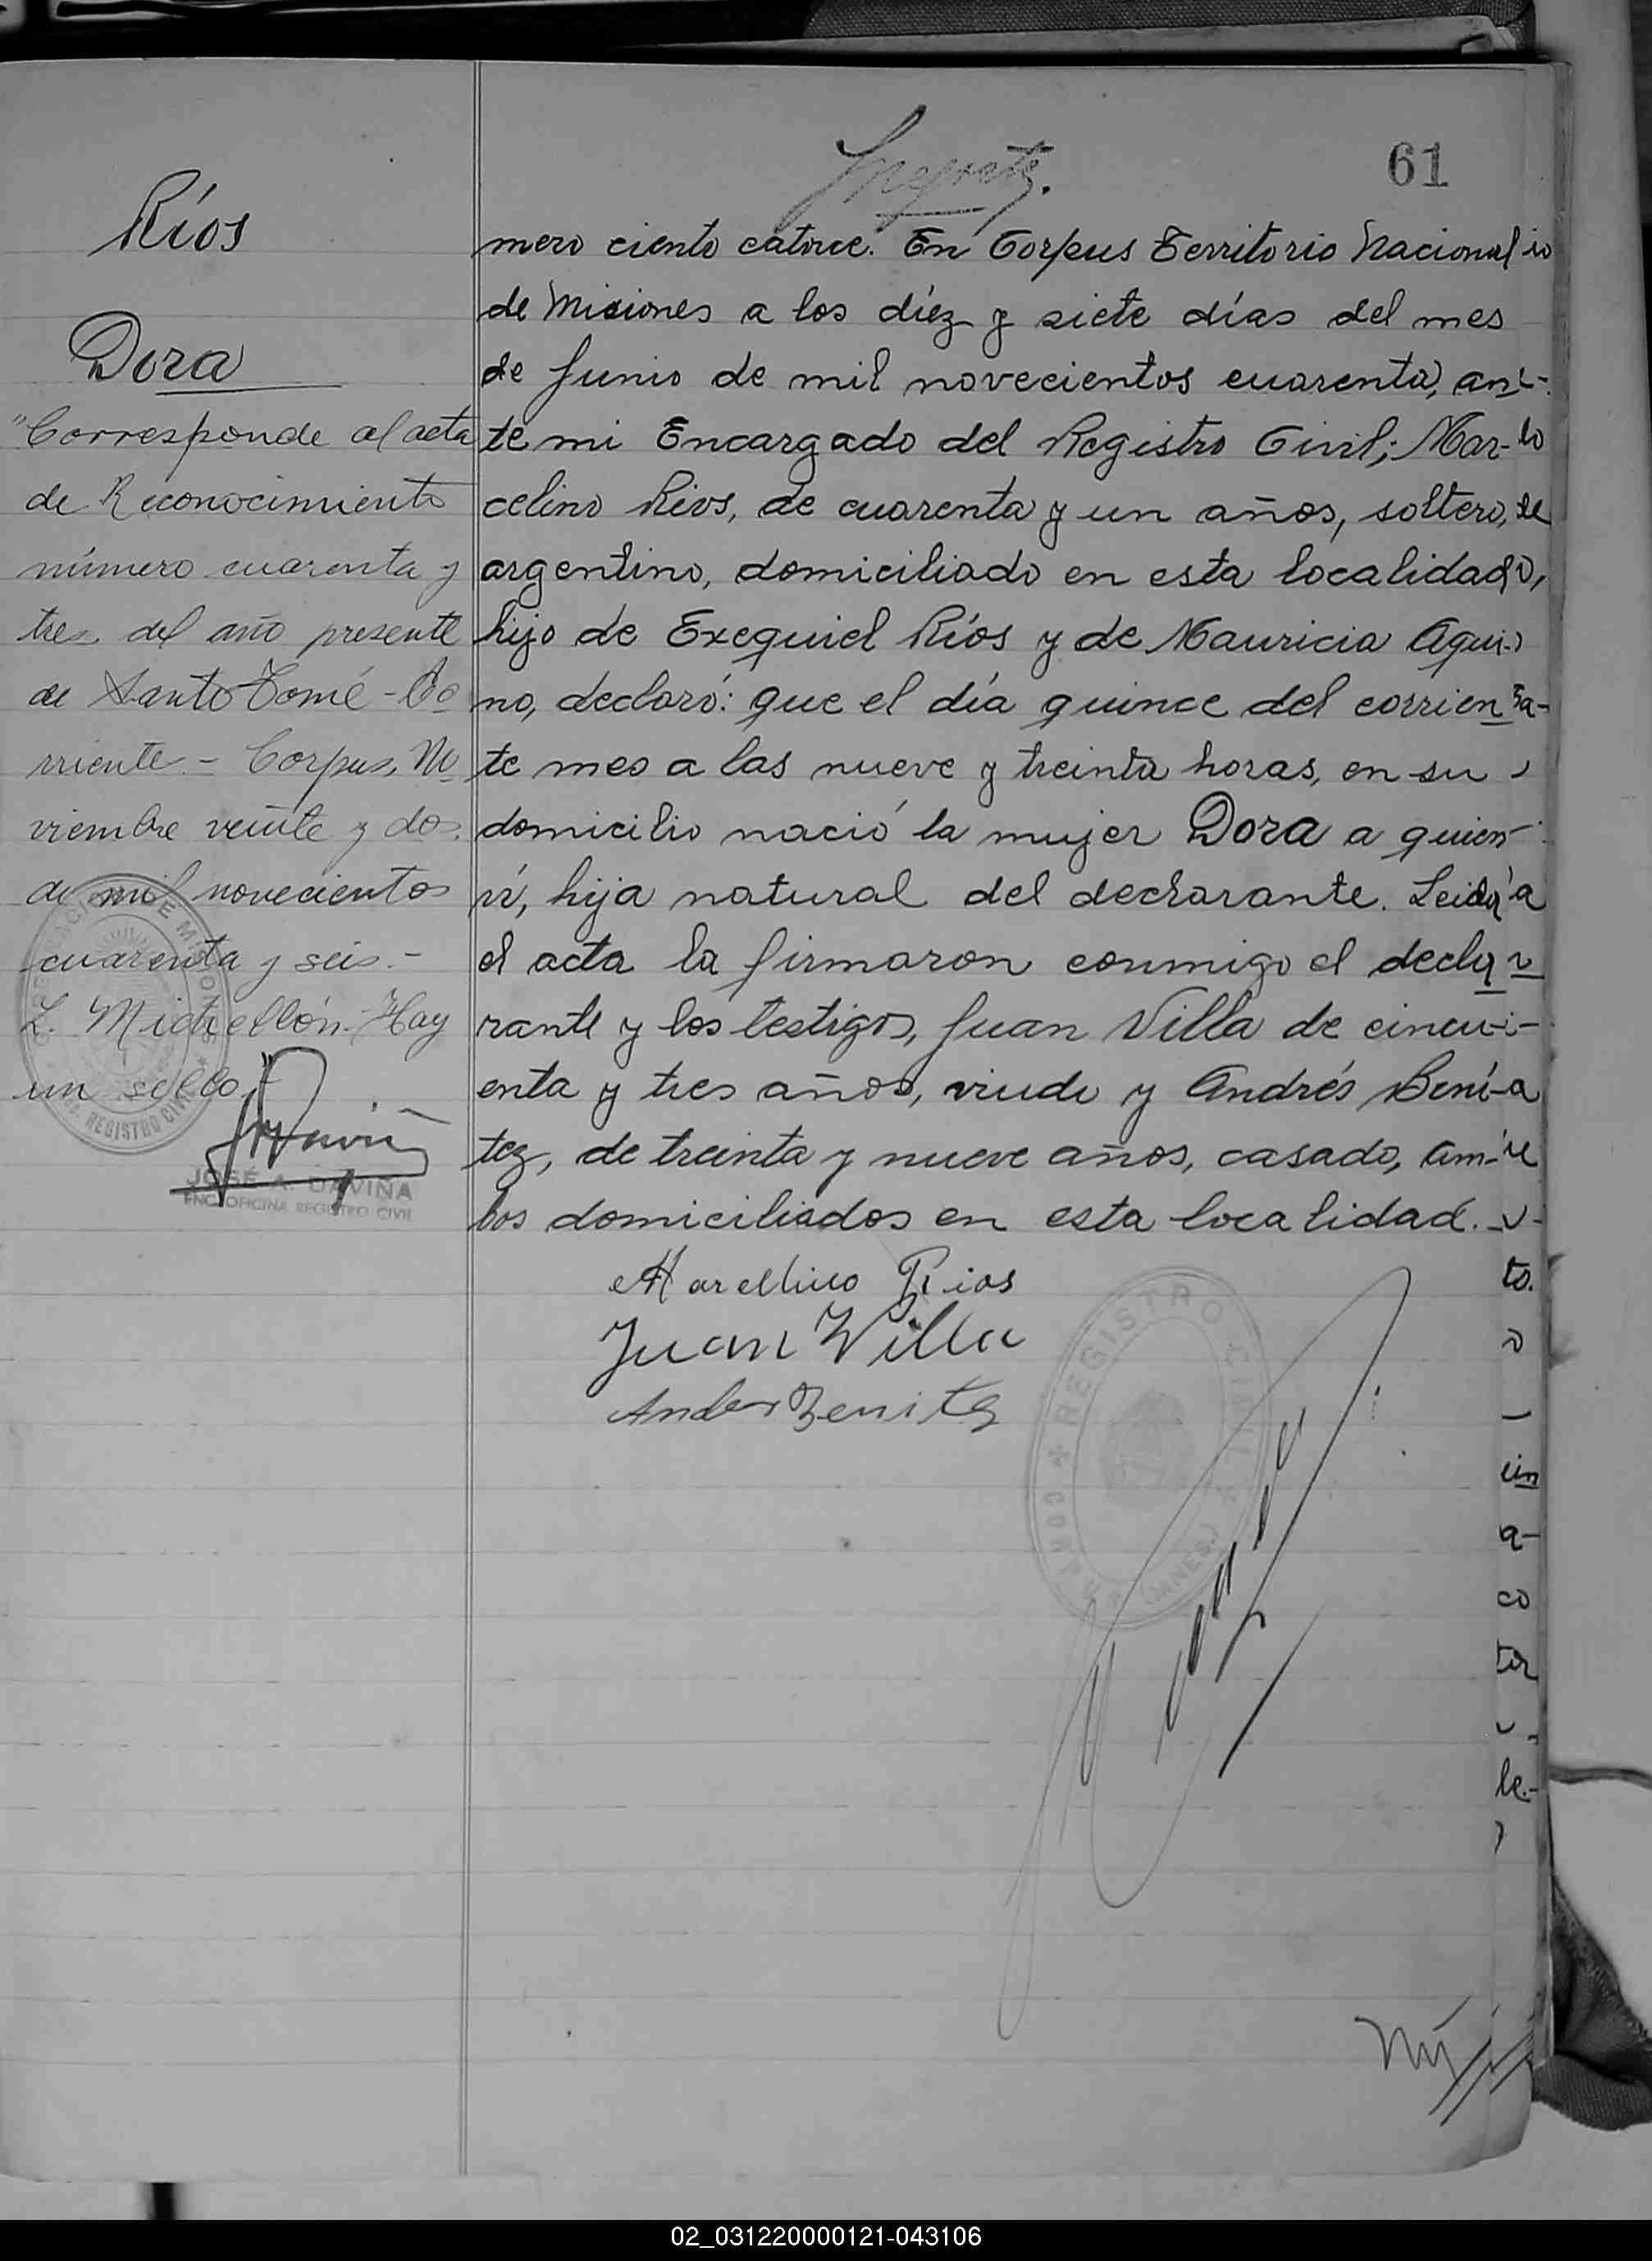 61
Ríos
Dora
"Corresponde al acta
de Reconocimiento
número cuarenta y
tres del año presente
de Santo Tomé - Co
rriente - Corpus, No
viembre veinte y dos
de mil novecientos
cuarenta y seis.-
L. Michellón. Hay
un sello"
JOSÉ A. DAVIÑA
ENC. OFICINA REGISTRO CIVIL
mero ciento catorce. En Corpus Territorio Nacional
de Misiones a los diéz y siete días del mes
de Junio de mil novecientos cuarenta, an-
te mi Encargado del Registro Civil; Mar-
celino Rios, de cuarenta y un años, soltero,
argentino, domiciliado en esta localidad,
hijo de Exequiel Ríos y de Mauricia Aqui-
no, declaró: que el día quince del corrien
te mes a las nueve y treinta horas, en su
domicilio nació la mujer Dora a quien
ví, hija natural del declarante. Leida
el acta la firmaron conmigo el decla
rante y los testigos, Juan Villa de cincu-
enta y tres años, viudo y Andrés Bení-
tez, de treinta y nueve años, casado, am-
bos domiciliados en esta localidad.
Marcelino Rios
Juan Villa
Andres Benitez
REGISTRO CIVIL
02_031220000121-043106